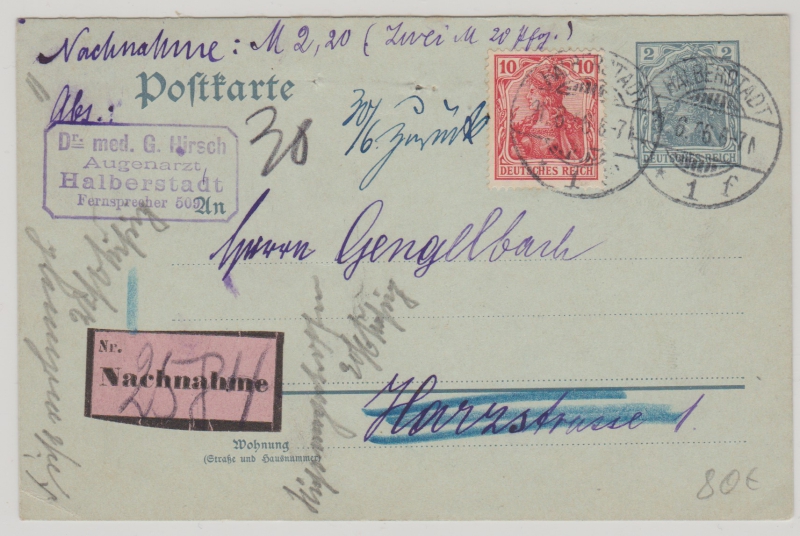 Nachnahme: M 2,20 (Zwei M 20 Pfg.)
Postkarte
Abs.:
Dr. med. G. Hirsch
Augenarzt
Halberstadt
Fernsprecher 509
An
30
30/6. Zurück
10 10
DEUTSCHES REICH
2 2
DEUTSCHES REICH
HALBERSTADT
HALBERSTADT
1 f
Herrn Gengelbach
Nr.
2584
Nachnahme
Harzstrasse 1.
Wohnung
(Straße und Hausnummer)
80€